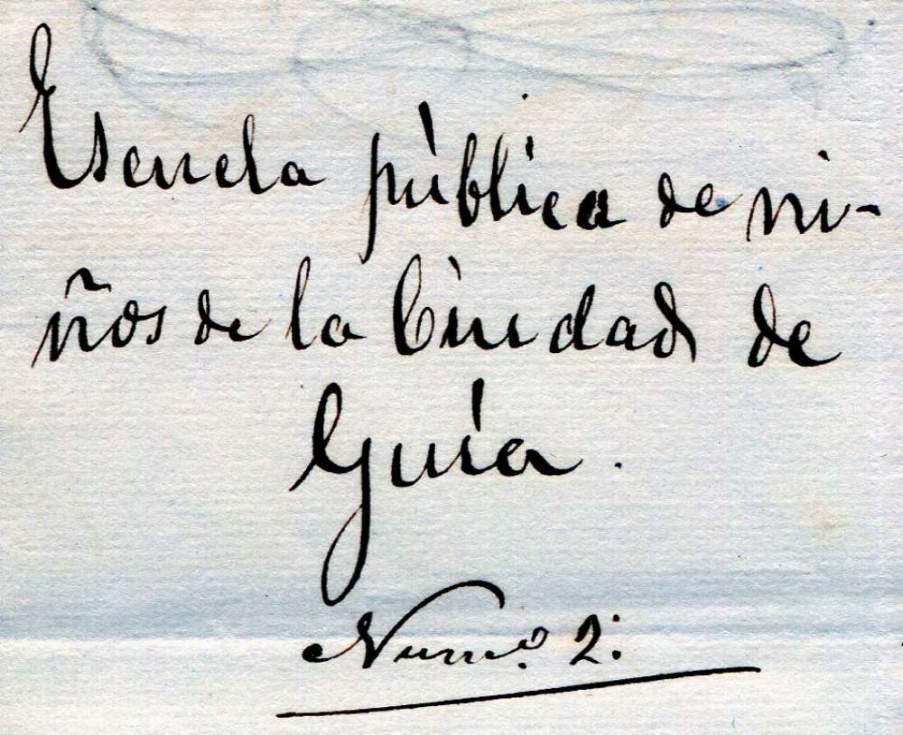 Escuela pública de ni-
ños de la Ciudad de
Guía.
Numº. 2: